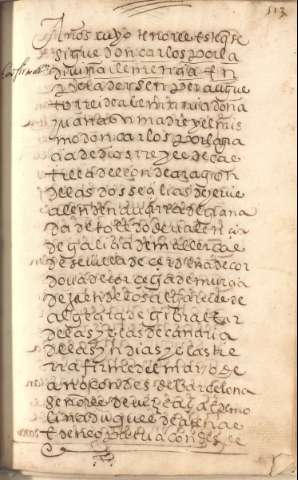 113
Años cuyo tenor es este q se
sigue don carlos por la
divina clemençia en
per augus
to rrei de alemania doña
juana su madre y el mis
mo don carlos por la gra
cia de dios rreyes de cas
tilla de leon de aragon
de las dos seçilias de jeru
salen de navarra de grana
da de toledo de valençia
de galizia de mallorcas
de sevilla de cerdeña de cor
dova de corcega de murçia
de jaen de los algarves de
algezira de gibraltar
de las yslas de canaria
de las yndias yslas tie
rra firme del mar o
ano condes de barcelona
señores de vizcaya e de mo
lina duques de atenas
e de neopatria condes de